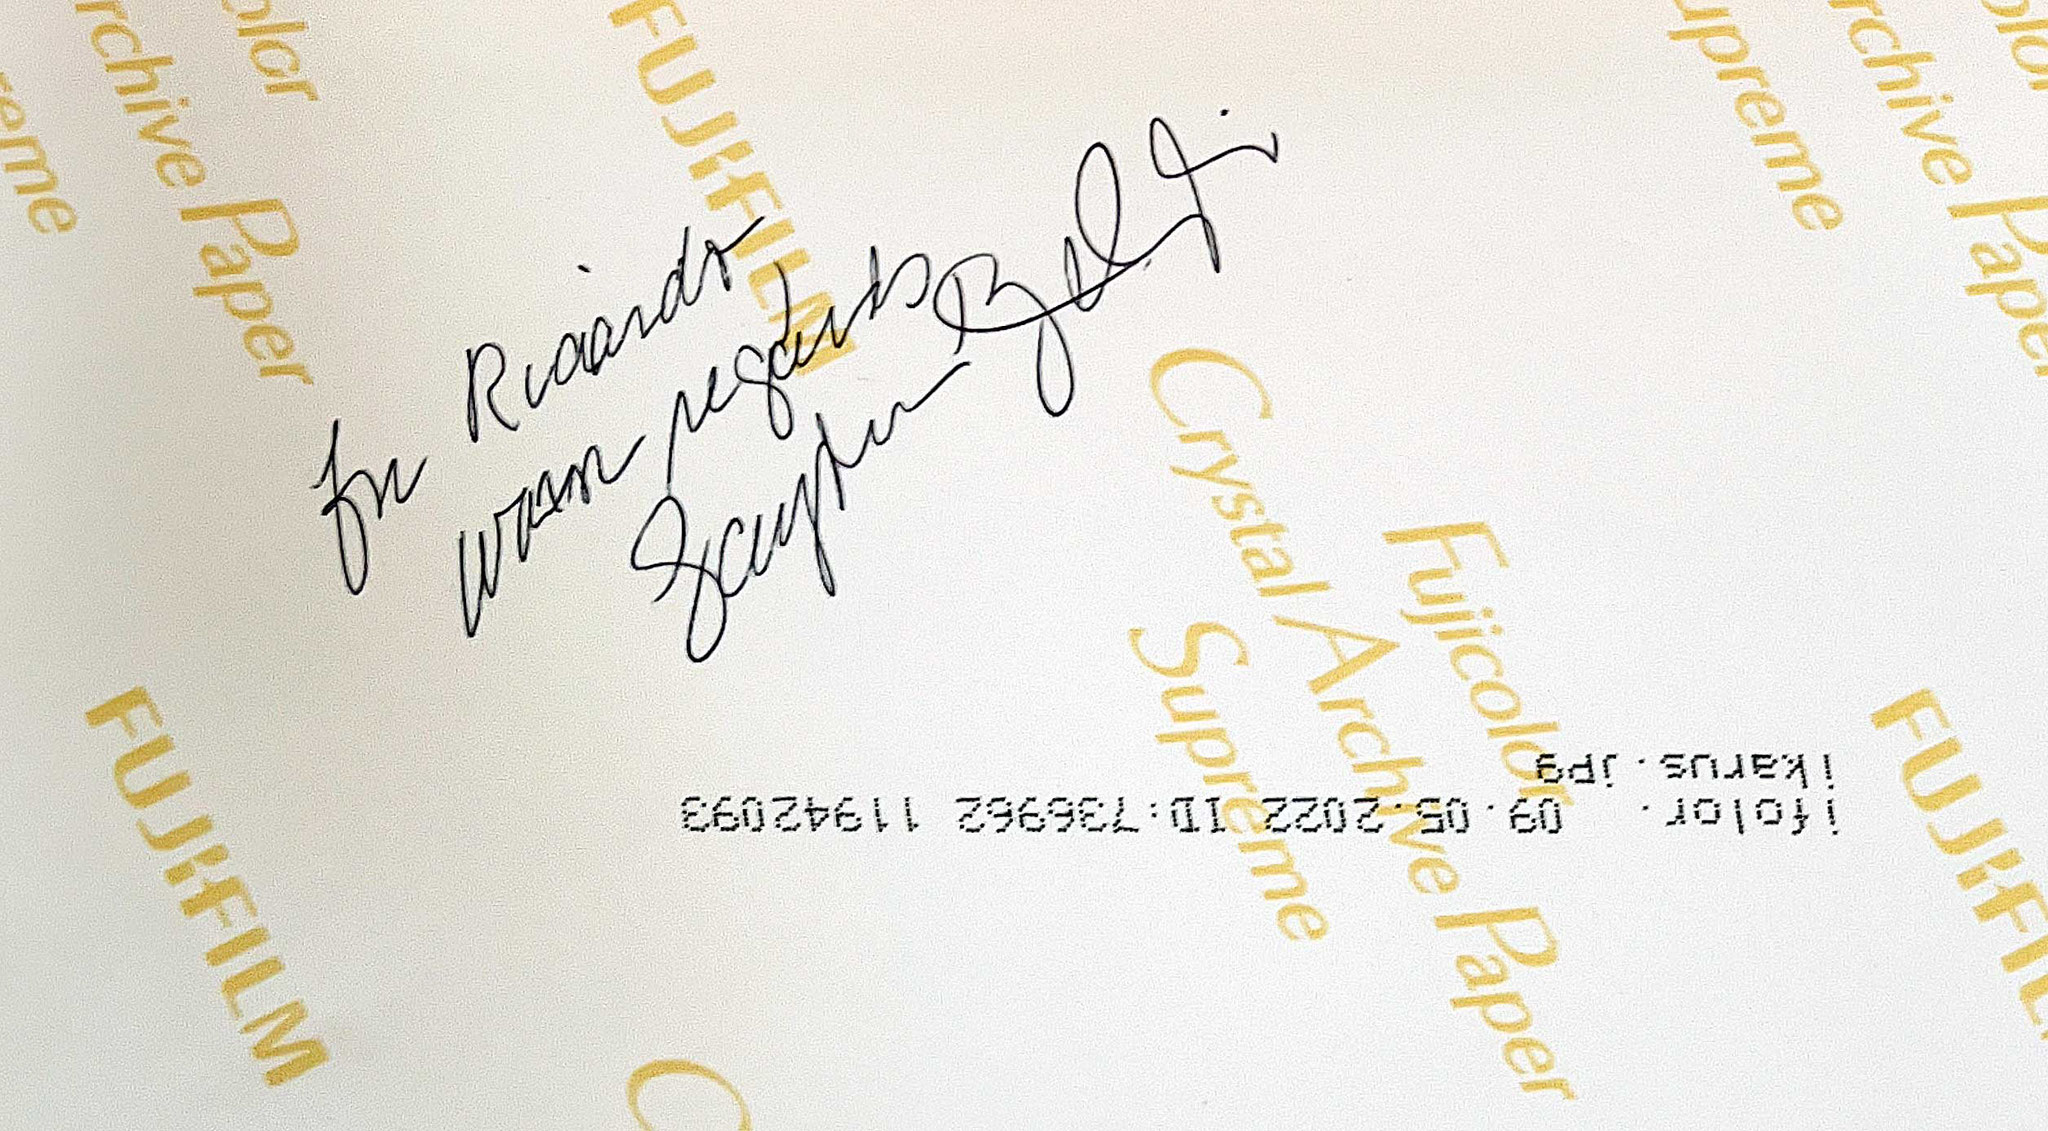 for Ricardo
warm regards
FUJIFILM
Fujicolor
Crystal Archive Paper
Supreme
FUJIFILM
FUJIFILM
olor
rchive Paper
reme
upreme
rchive Paper
olor
ifolor. 09.05.2022 ID:736962 11942093
ikarus.jpg